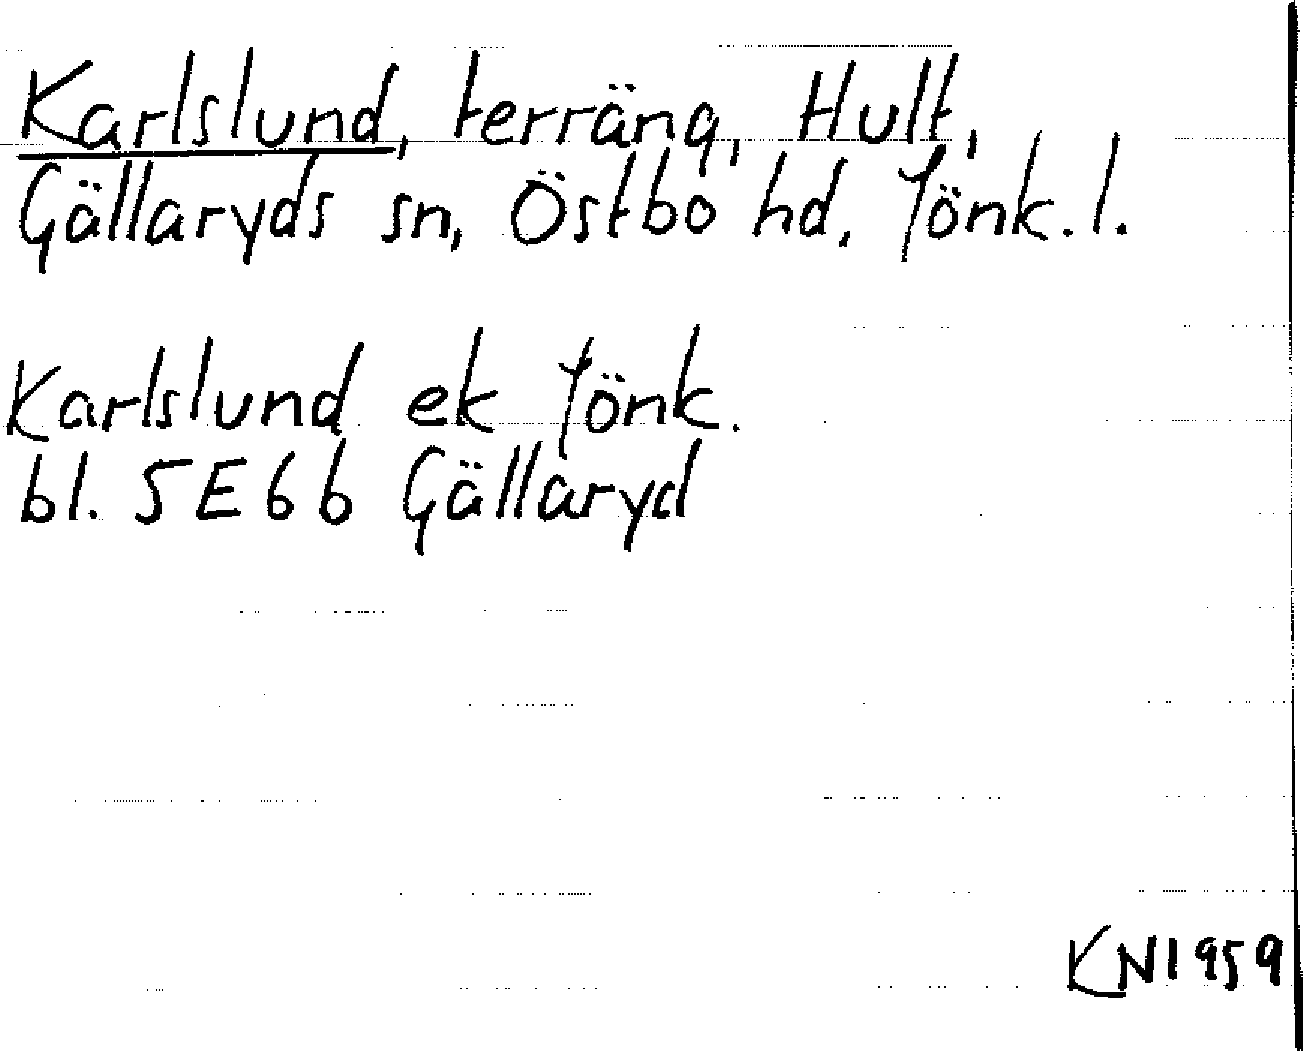 Karlslund, terräng, Hult,
Gällaryds sn, Östbo hd, Jönk. l.
Karlslund ek Jönk.
bl. 5E6b Gällaryd
KN1959